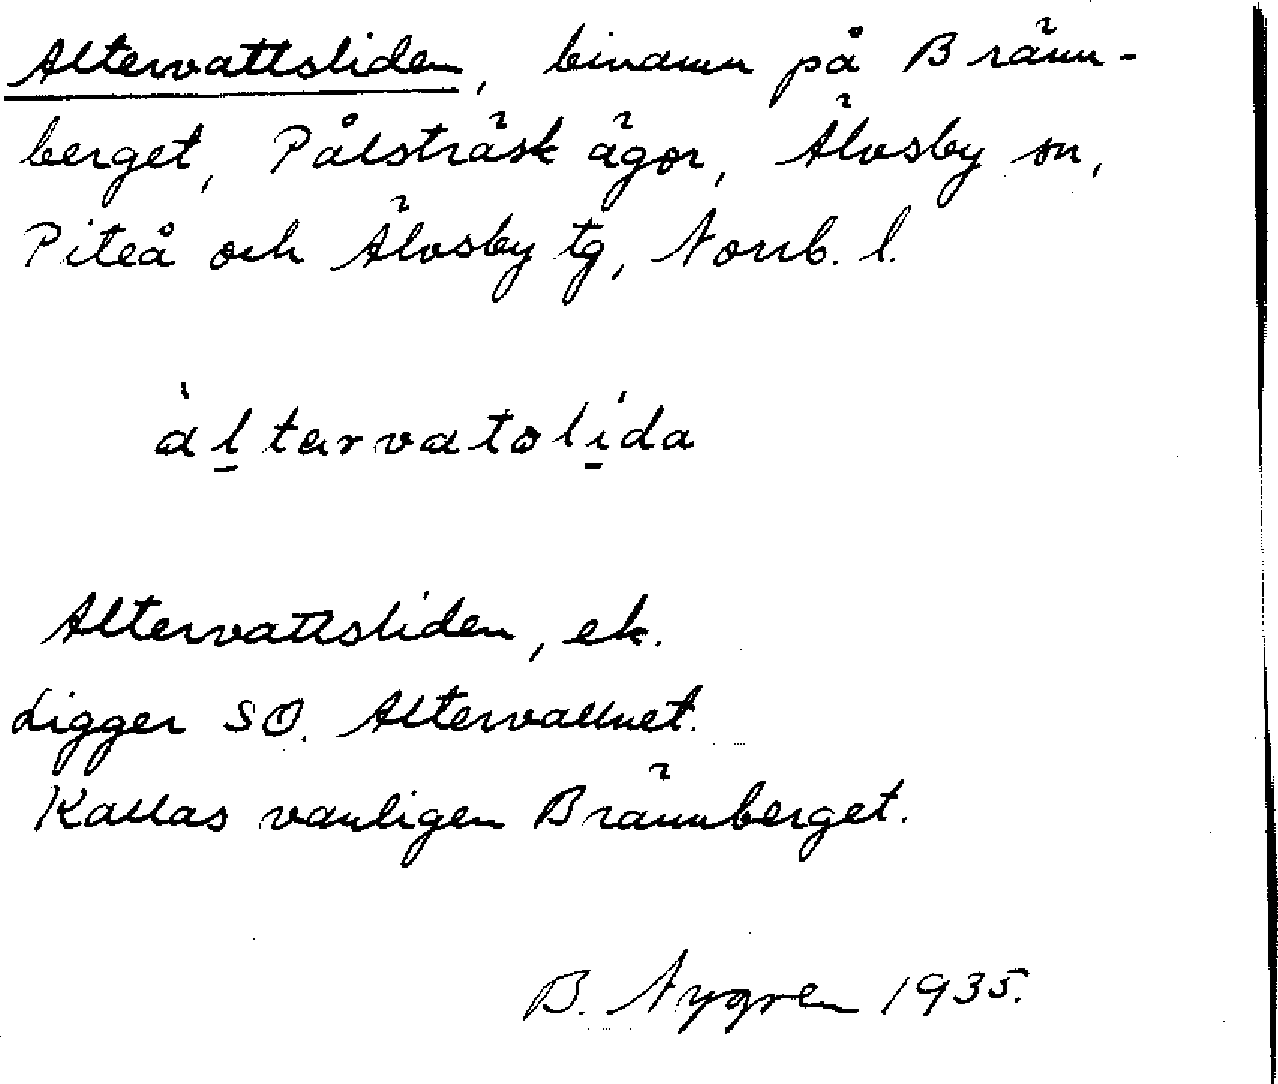 Altervattsliden, binamn på Bränn-
berget, Pålsträsk ägor, Älvsby sn,
Piteå och Älvsby tg, Norrb. l.
àl̠tarvatol̀i̠da
Altervattsliden, ek.
Ligger SO. Altervattnet.
Kallas vanligen Brännberget.
B. Nygren 1935.